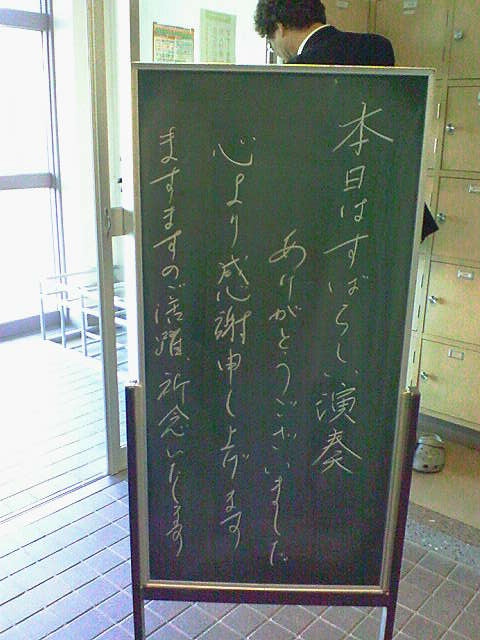 本日はすばらしい演奏
ありがとうございました
心より感謝申し上げます
ますますのご活躍、祈念いたします